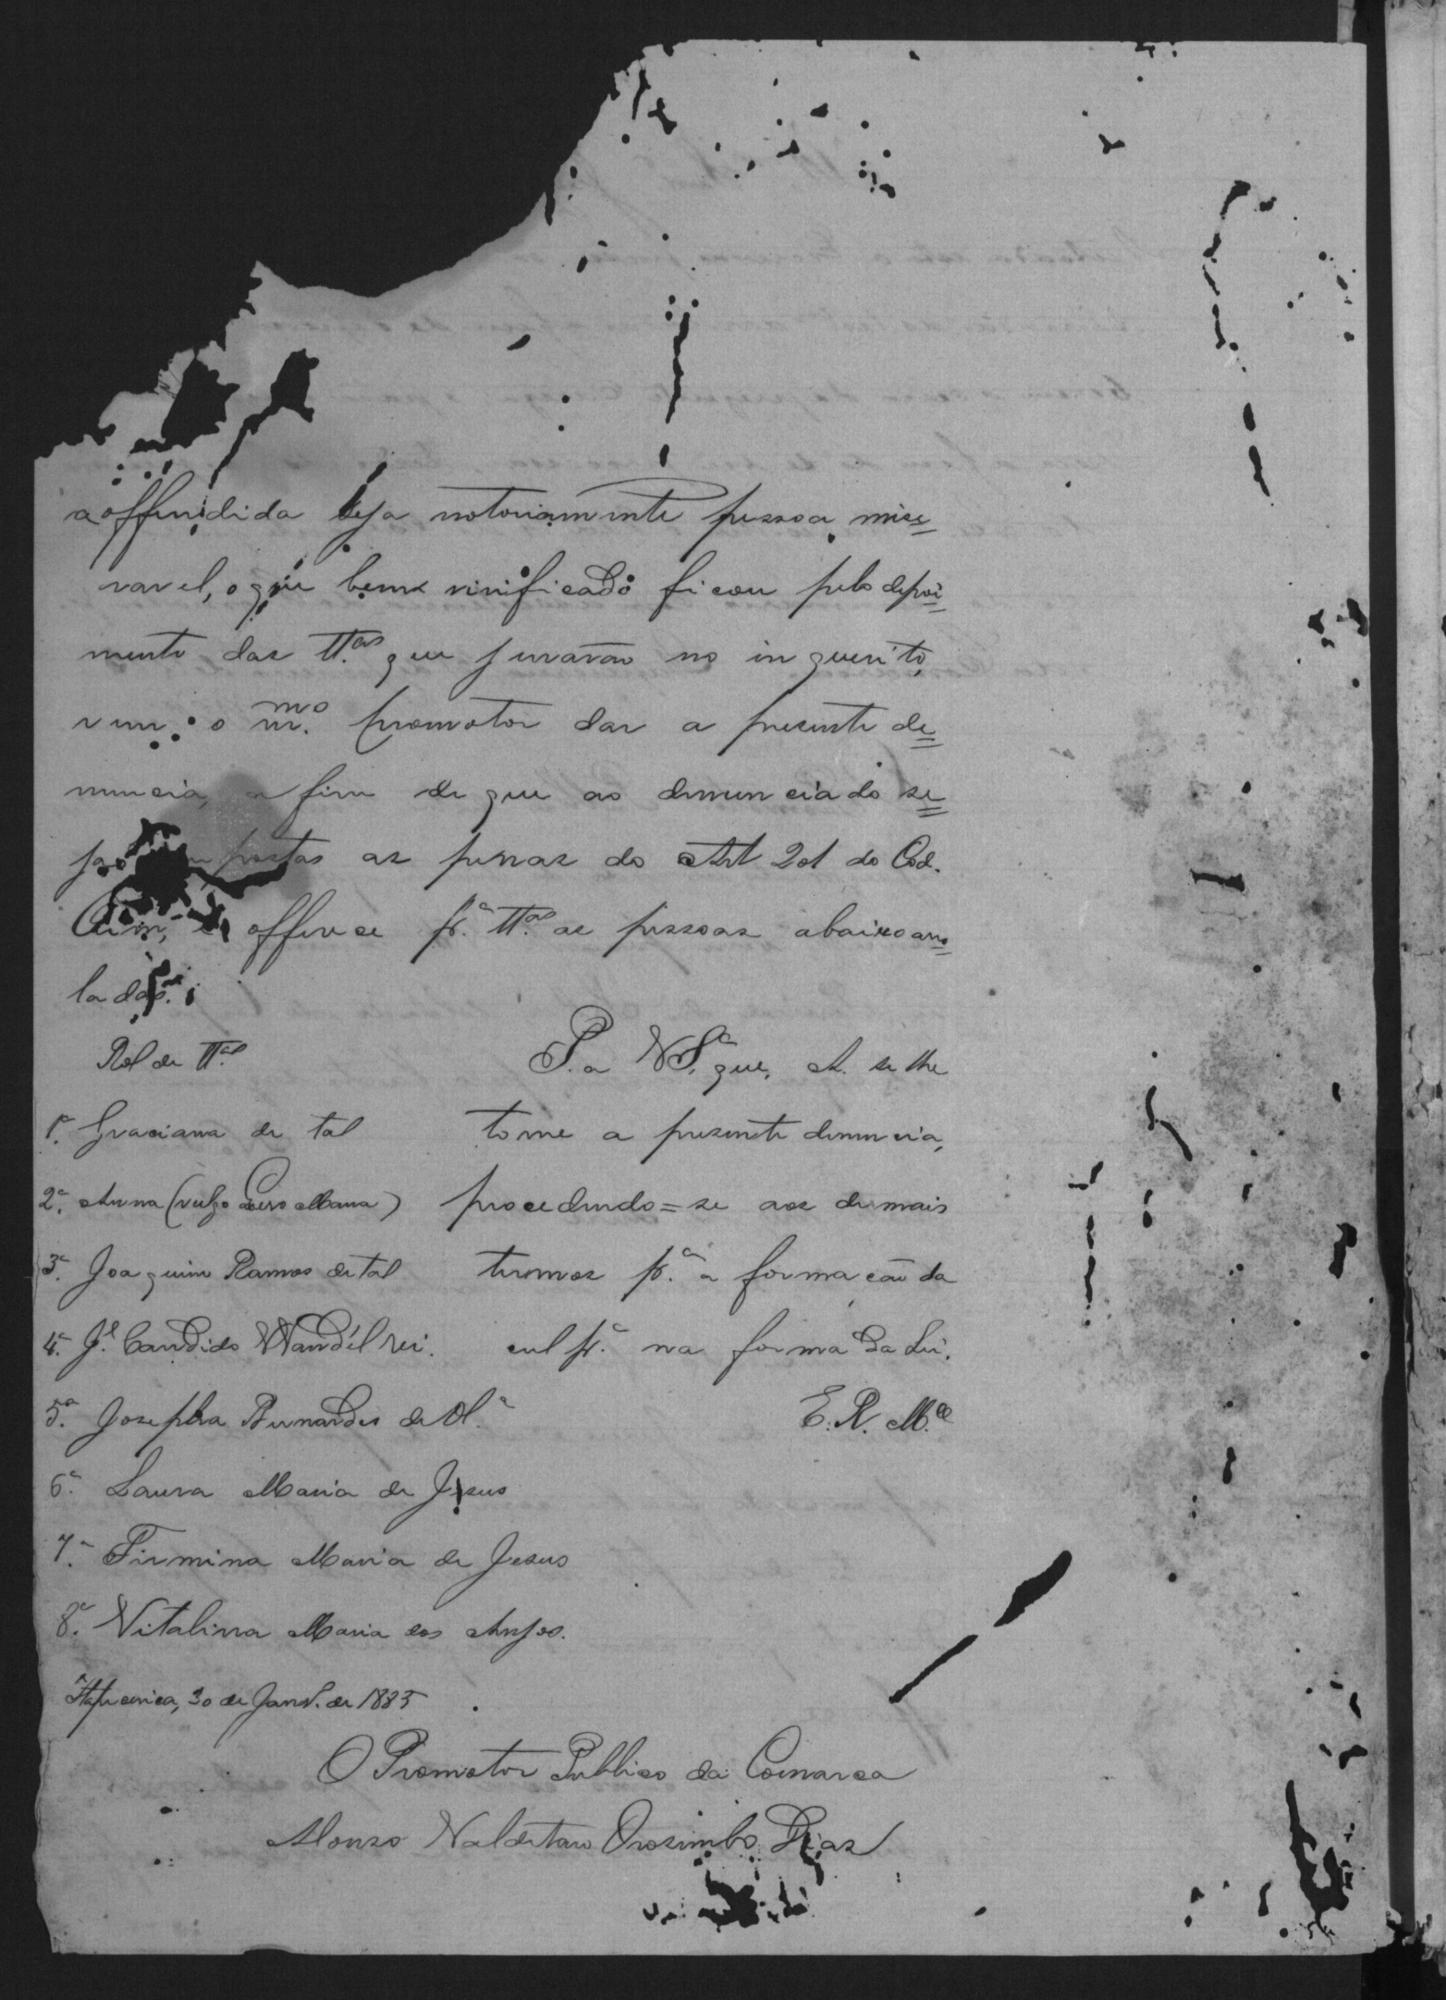 a offendida seja notoriamente pessoa mise=
ravel, o que bem verificado ficou pelo depoi=
mento das tt.as que jurarão no inquerito,
vem o m.mo promotor dar a presente de=
nuncia, a fim de que ao denunciado se=
jão impostas as penas do Art 201 do Cod.
Crim, e offerece p.a tt.as as pessoas abaixo arro=
ladas.
Rol de tt.as
1.a Graciana de tal
2.a Anna (vulgo
3.a Joaquim Ramos de tal
4.a J.e Candido
5.a Josepha Bernardes de Ol.a
6.a Laura Maria de Jesus
7.a Firmina Maria de Jesus
8.a Vitalina Maria dos Anjos.
P. a V. S.a que, A. se lhe
tome a presente denuncia,
procedendo=se aos demais
termos p.a a formação da
culp.a na forma da Lei.
E. R. M.ce
Itapecerica, 30 de Janr.o de 1885
O Promotor Publico da Comarca
Alonso Orozimbo Dias